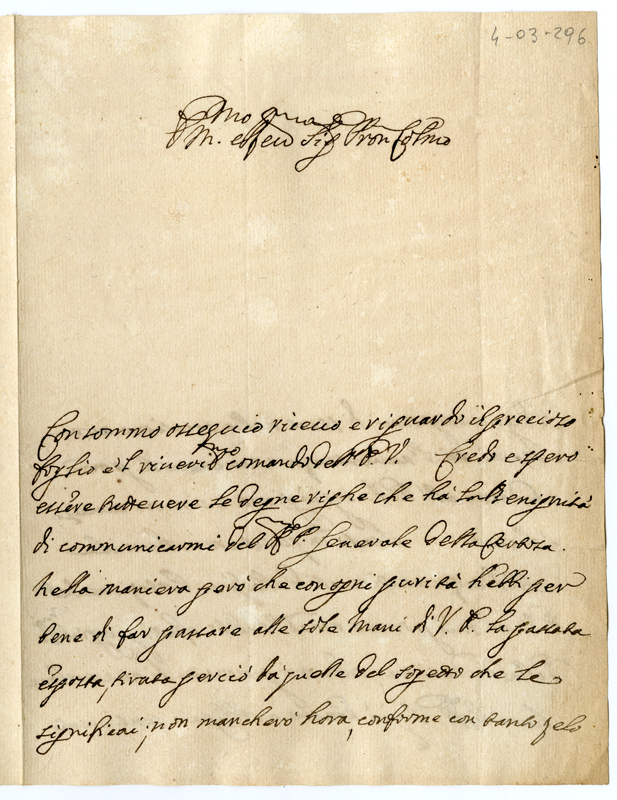 4-03-296.
P.mo
M. e Sig Pron Col.mo
Con sommo ossequio riceuo e riguardo il precioso
foglio e'l riuerito comando dell P. V. Credo e spero
essere tutte uere le degne righe che hà la Benignità
di communicarmi del P. Generale della Certosa.
nella maniera però che con ogni purità hebbi per
bene di far passare alle sole mani di V. P. la passata
esposta, tirata perciò dà quelle del sogetto che le
significai; non mancherò hora, conforme con tanto zelo